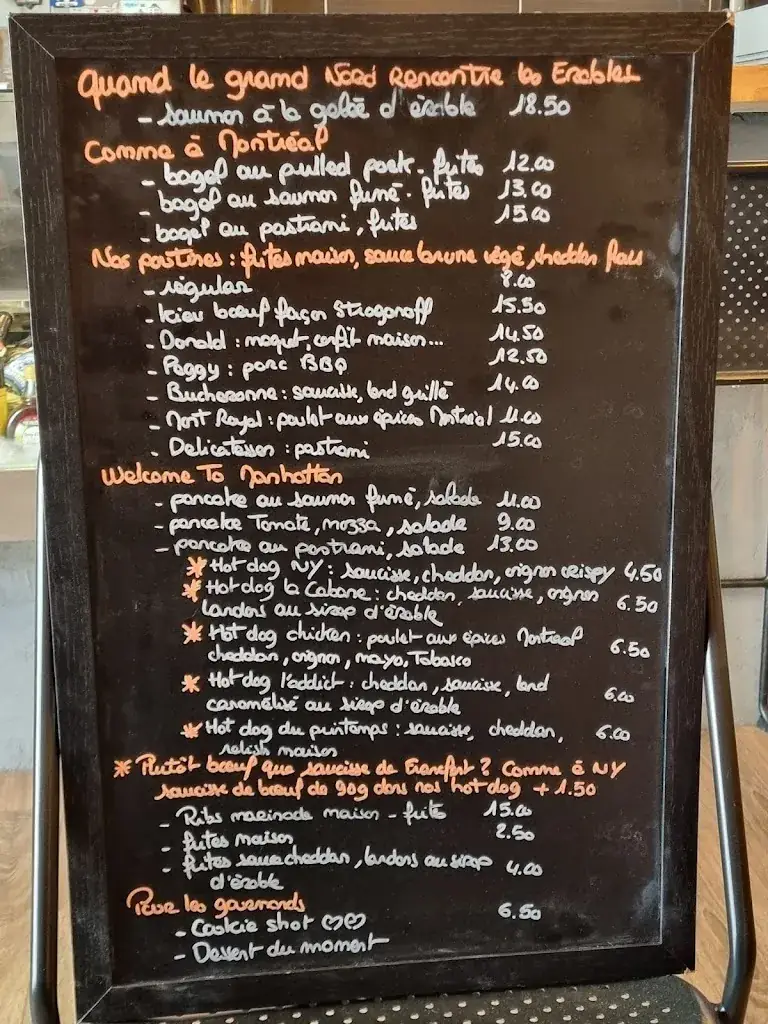 Quand le grand Nord Rencontre les Erables
- saumon à la gelée d'érable 18.50
Comme à Montréal
- bagel au pulled pork - frites 12.00
- bagel au saumon fumé - frites 13.00
- bagel au pastrami, frites 15.00
Nos poutines : frites maison, sauce brune végé, cheddar frais
- régular 8.00
- kiev bœuf façon Stroganoff 15.50
- Donald : magret, confit maison... 14.50
- Peggy : porc BBQ 12.50
- Bucheronne : saucisse, lard grillé 14.00
- Mont Royal : poulet aux épices Montréal 11.00
- Delicatessen : pastrami 15.00
Welcome To Manhattan
- pancake au saumon fumé, salade 11.00
- pancake Tomate, mozza, salade 9.00
- pancake au pastrami, salade 13.00
* Hot dog NY : saucisse, cheddar, oignon crispy 4.50
* Hot dog la Cabane : cheddar, saucisse, oignon
lardons au sirop d'érable 6.50
* Hot dog chicken : poulet aux épices Montréal
cheddar, oignon, mayo, Tabasco 6.50
* Hot dog l'addict : cheddar, saucisse, lard
caramélisé au sirop d'érable 6.00
* Hot dog du printemps : saucisse, cheddar,
relish maison 6.00
* Plutôt bœuf que saucisse de Francfort ? Comme à NY
saucisse de bœuf de 90g dans nos hot dog + 1.50
- Ribs marinade maison - frite 15.00
- frites maison 2.50
- frites sauce cheddar, lardons au sirop
d'érable 4.00
Pour les gourmands
- Cookie shot ♡♡ 6.50
- Dessert du moment